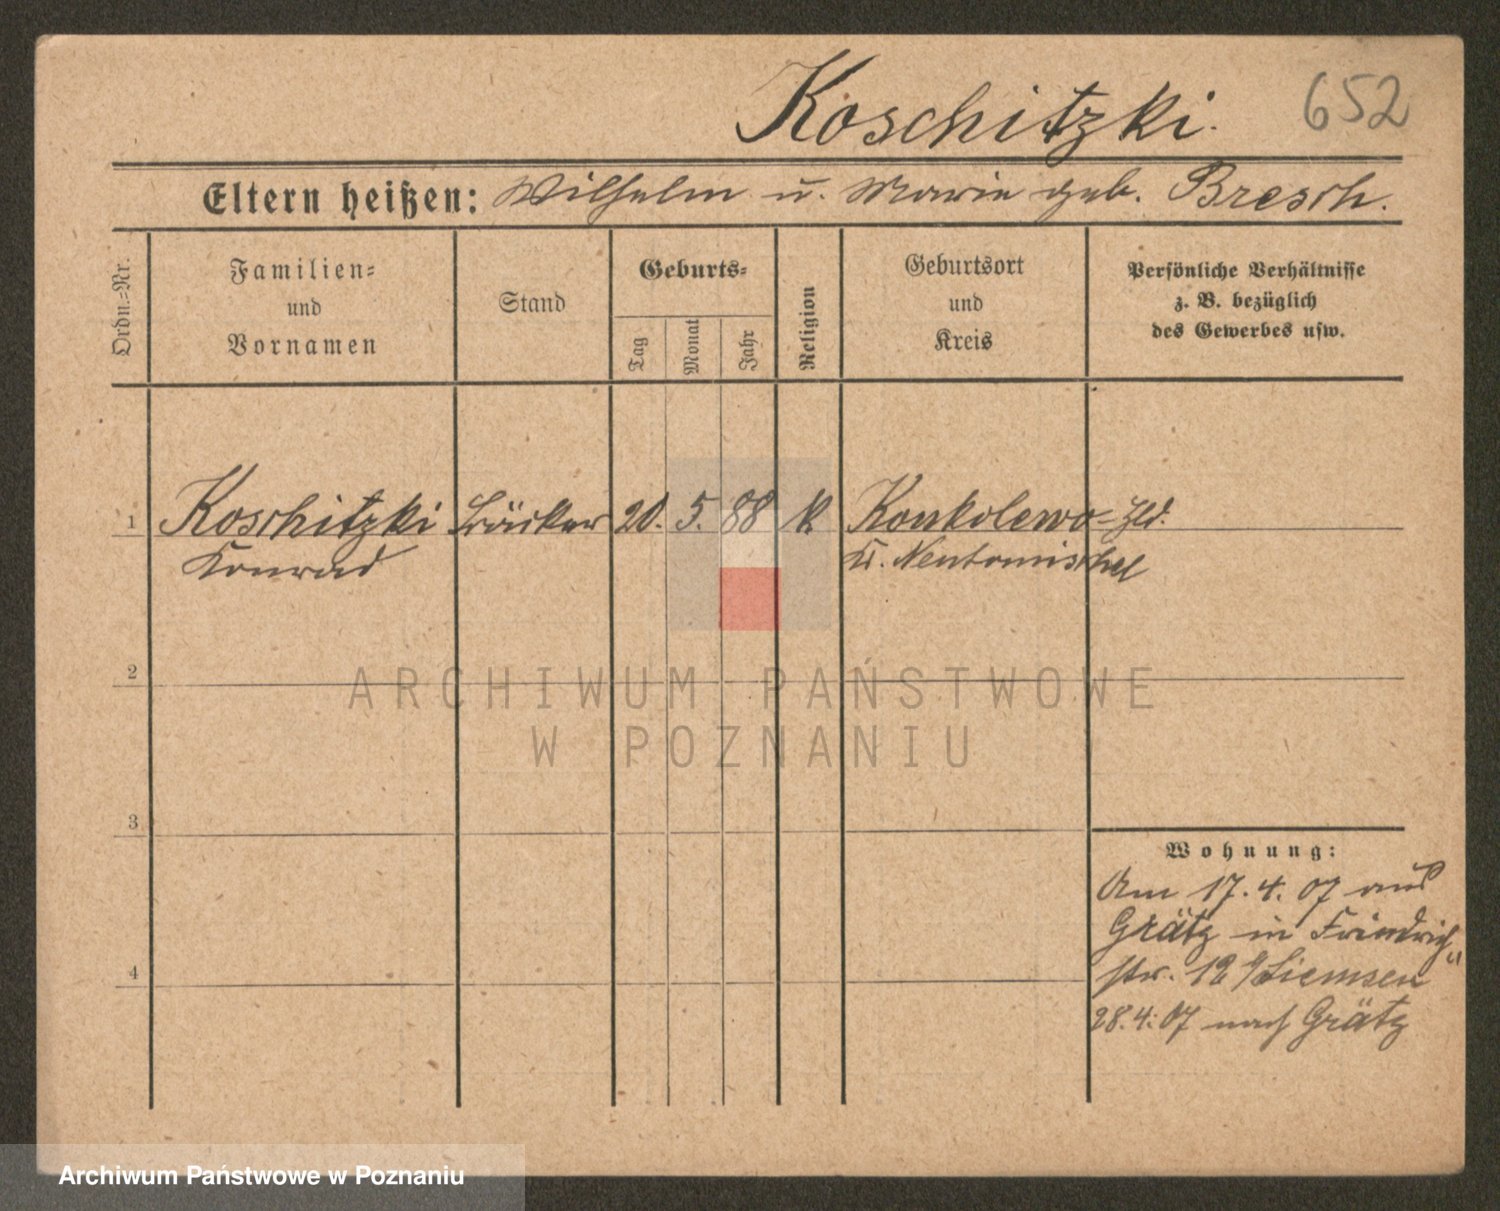 Koschitzki.
652
Eltern heißen: Wilhelm u. Marie geb. Bresch.
Ordn.=Nr.
Familien=
und
Vornamen
Stand
Geburts=
Tag
Monat
Jahr
Religion
Geburtsort
und
Kreis
Persönliche Verhältnisse
z. B. bezüglich
des Gewerbes usw.
1 Koschitzki Bäcker 20. 5. 88 k Konkolewo=Hld.
Konrad Kr. Neutomischel
2
ARCHIWUM PAŃSTWOWE
W POZNANIU
3
Wohnung:
Am 17.4.07 aus
Grätz in Friedrich"
4
str. 12 b/Siemsen
28.4.07 nach Grätz
Archiwum Państwowe w Poznaniu